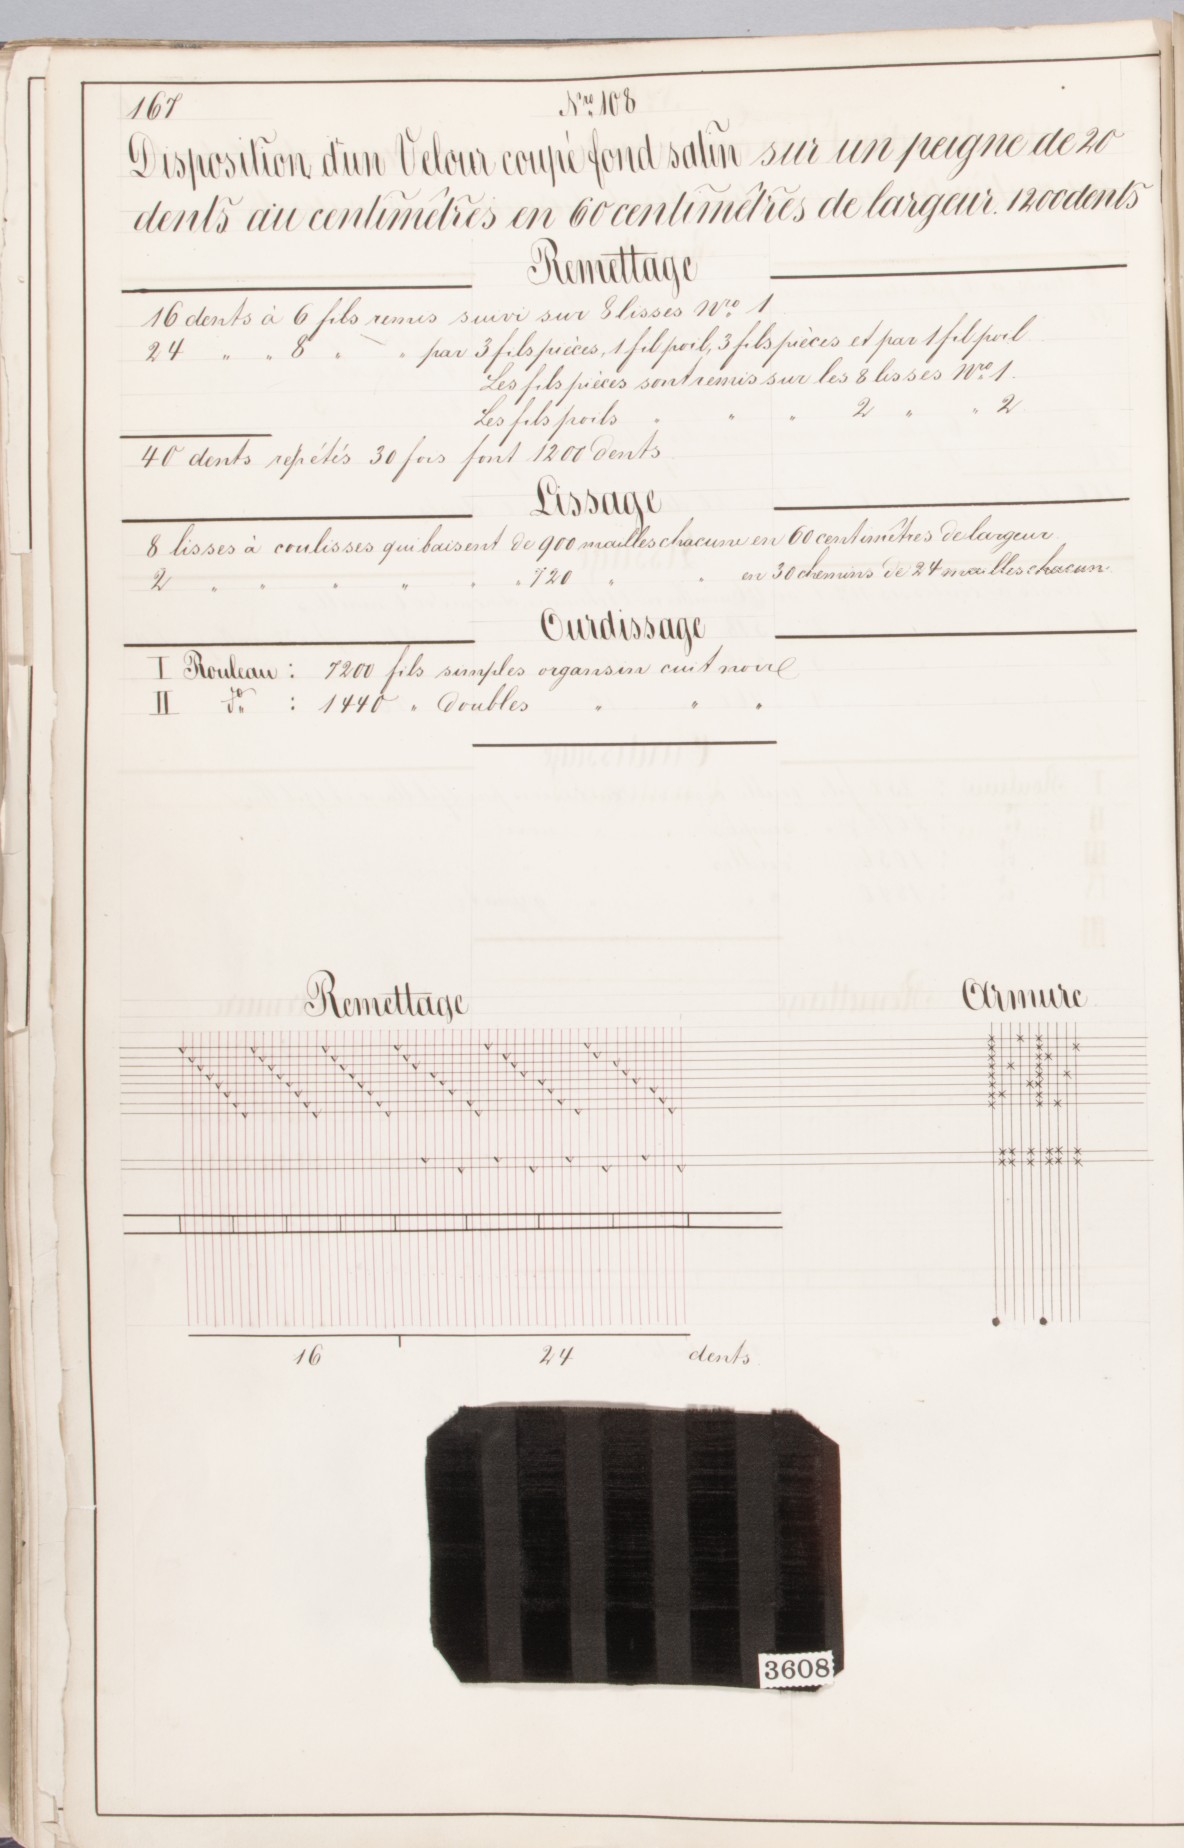 167
Nro. 108
Disposition d'un Velour coupé fond satin sur un peigne de 20
dents au centimêtres en 60 centimêtres de largeur. 1200 dents
Remettage
16 dents à 6 fils remis suivi sur 8 lisses Nro. 1
24 " " 8 " " par 3 fils pièces, 1 fil poil, 3 fils pièces et par 1 fil poil
Les fils pièces sont remis sur les 8 lisses Nro. 1.
Les fils poils " " " 2 " " 2
40 dents repétés 30 fois font 1200 dents
Lissage
8 lisses à coulisses qui baisent de 900 mailles chacune en 60 centimêtres de largeur.
2 " " " " " " 720 " " en 30 chemins de 24 mailles chacun.
Ourdissage
I Rouleau : 7200 fils simples organsin cuit noir
II do. : 1440 " doubles " " "
Remettage
Armure
16 24 dents
3608